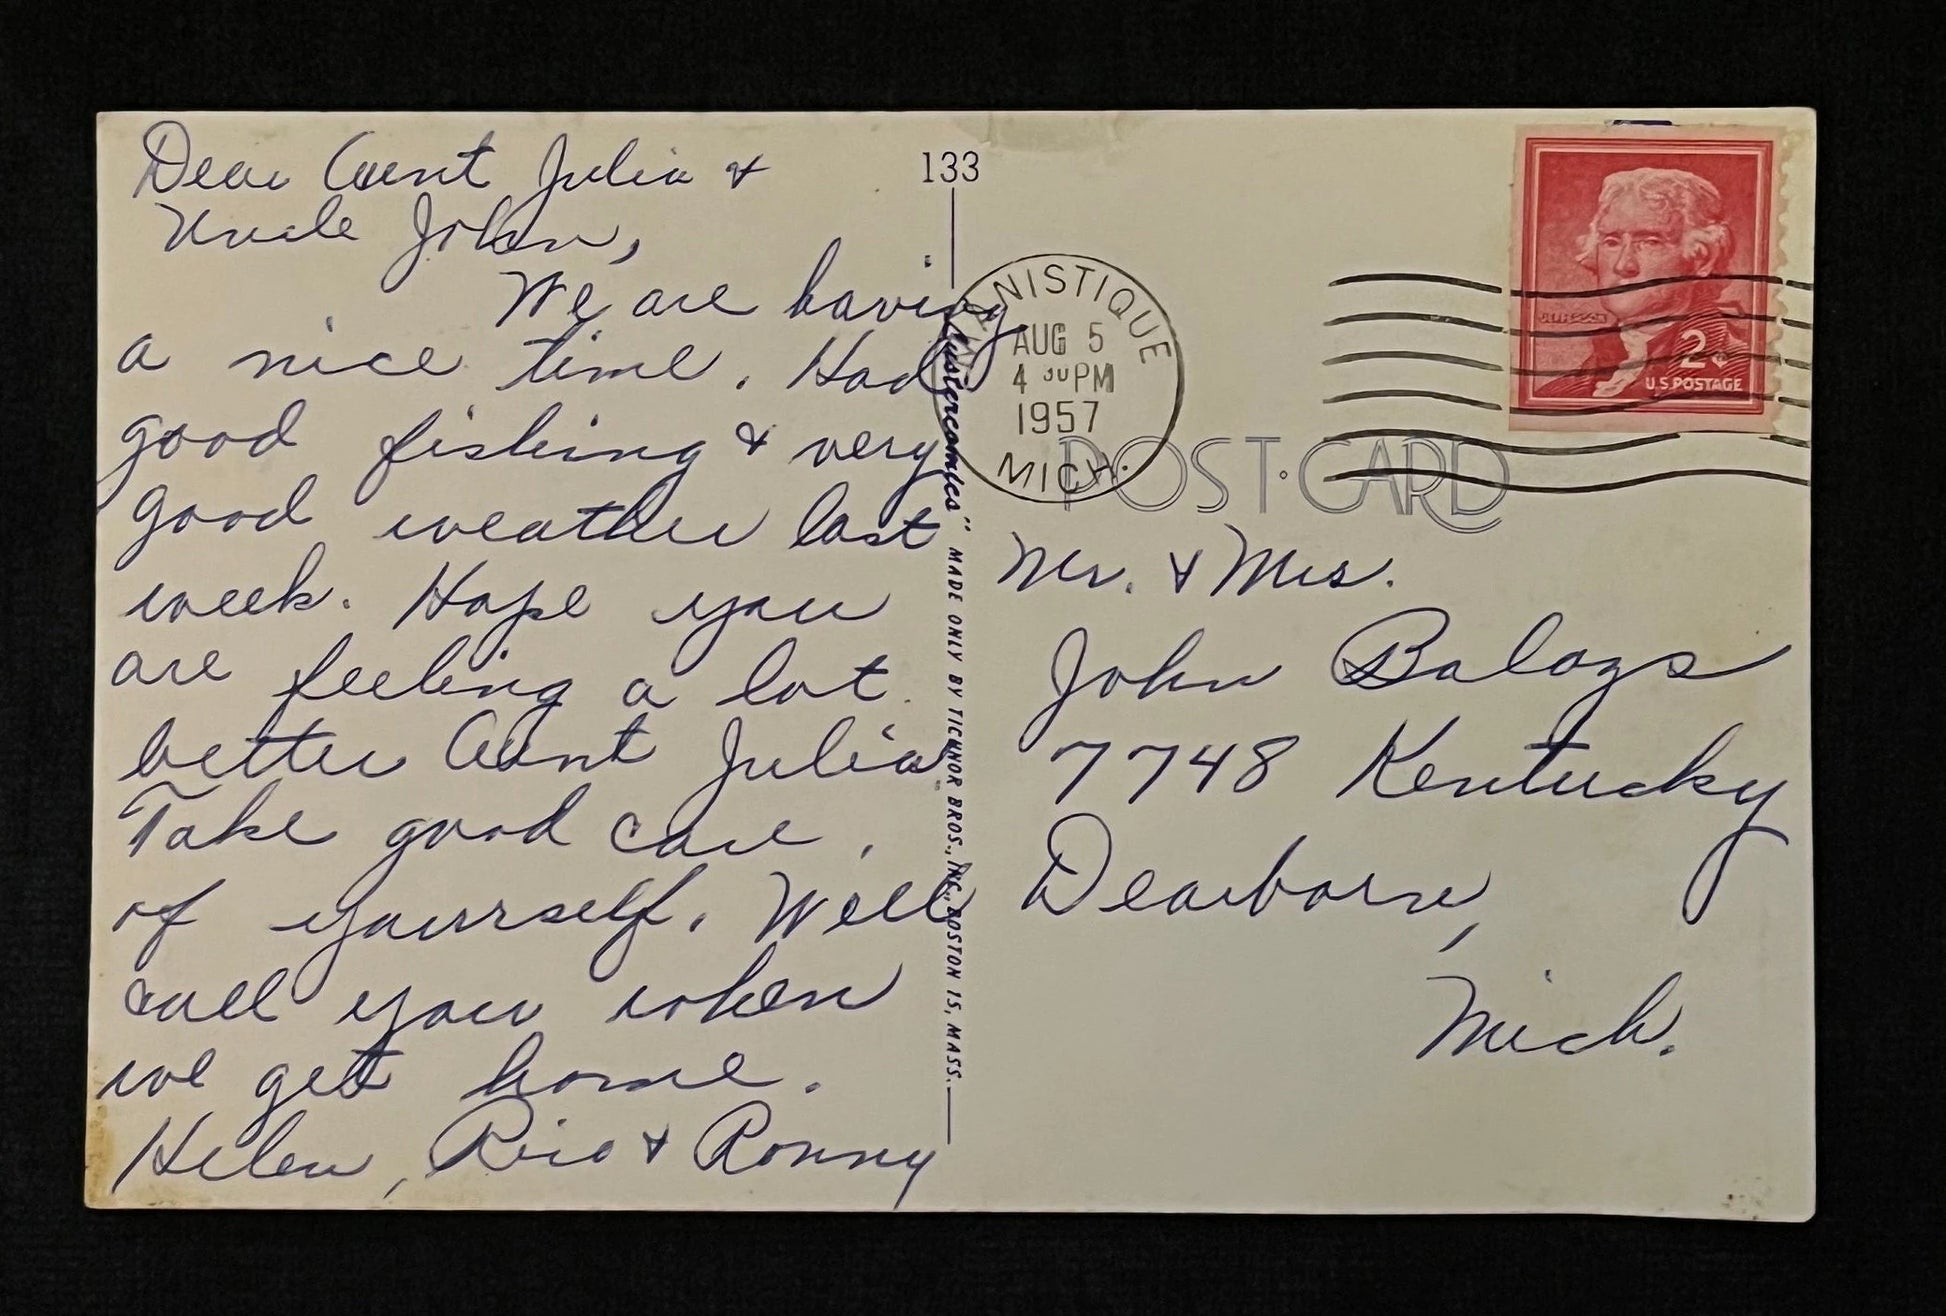 Dear Aunt Julia &
Uncle John,
We are having
a nice time. Had
good fishing & very
good weather last
week. Hope you
are feeling a lot
better Aunt Julia.
Take good care
of yourself. Well
call you when
we get home.
Helen, Rico & Ronny
133
"Lustercomics" MADE ONLY BY TICHNOR BROS., INC., BOSTON 15, MASS.
MANISTIQUE
AUG 5
4 30 PM
1957
MICH.
JEFFERSON
2¢
U.S. POSTAGE
POST·CARD
Mr. & Mrs.
John Balazs
7748 Kentucky
Dearborn,
Mich.